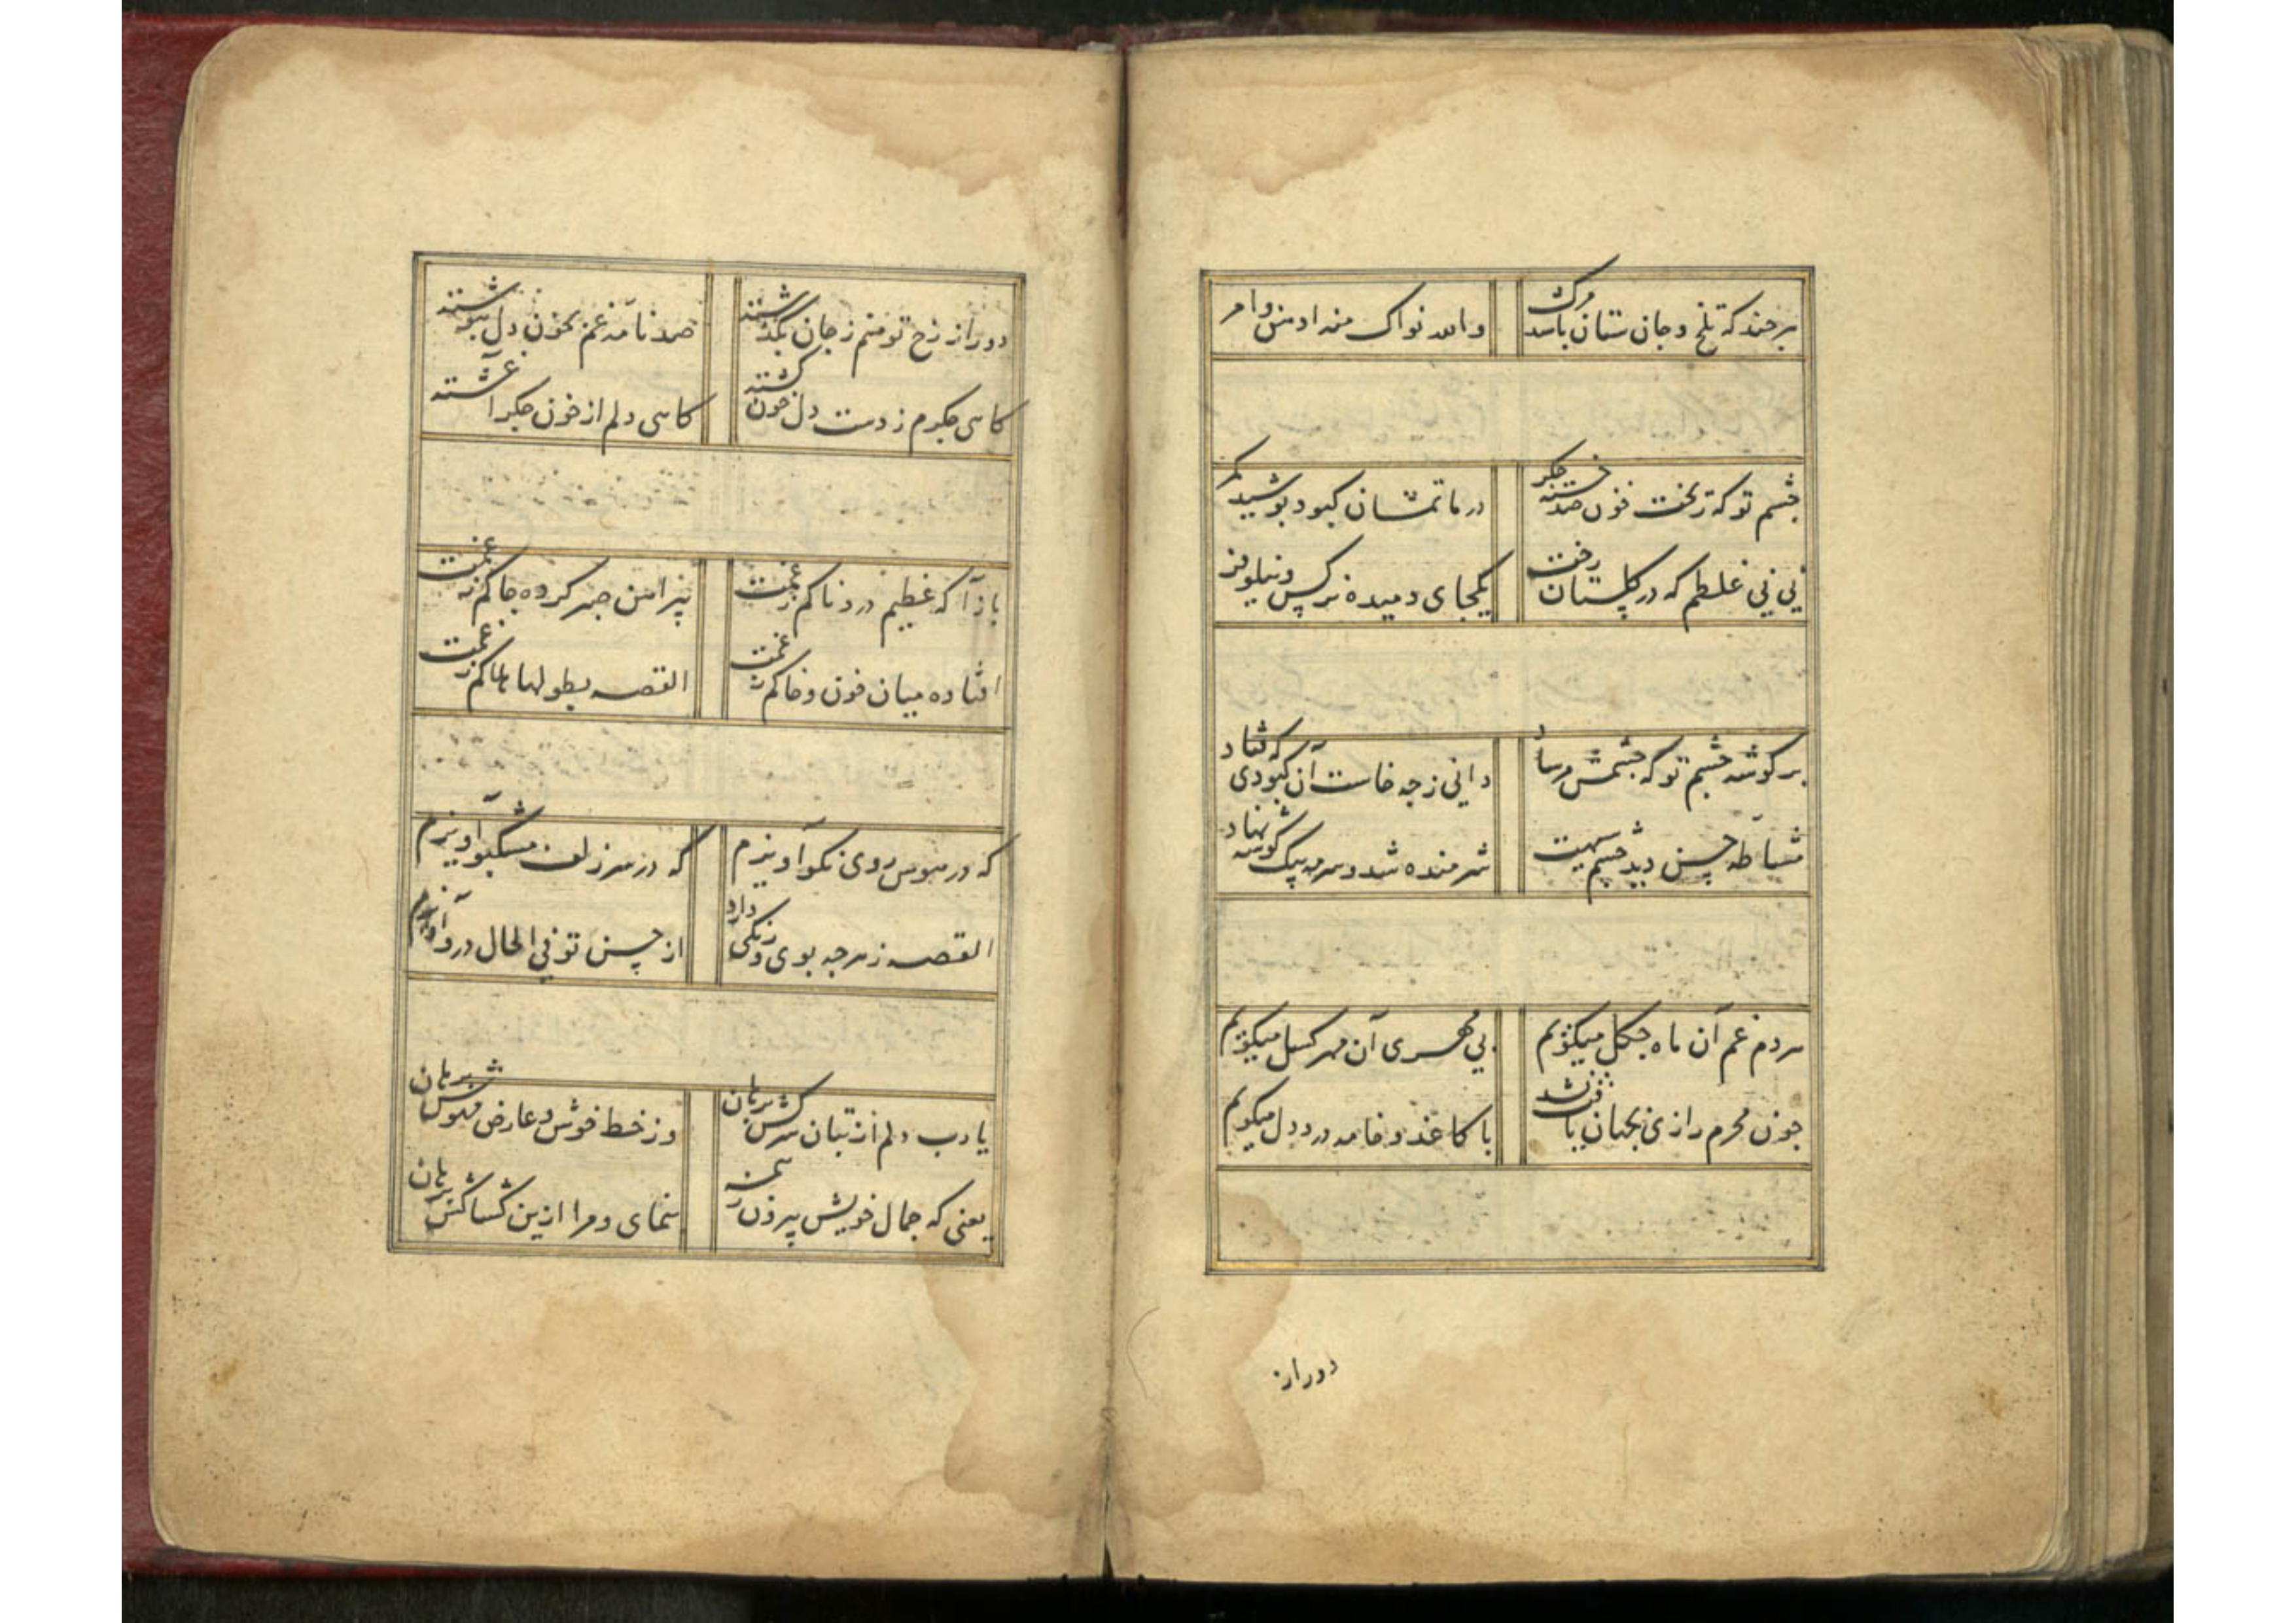 هرچند که تلخ و جان ستان باشد مرک
والله
چشم تو که ریخت خون صد خسته جکر
در ماتمشان کبود پوشید مکر
نی نی غلطم که در کلستان رخت
یکجای دمیده نرکس و نیلوفر
بر کوشه چشم تو که چشمش مرساد
دانی ز چه خاست آن کبودی که فتاد
مشاطه حسن دید چشم سیهت
شرمنده شد و سرمه بیک کوشه نهاد
هردم غم آن ماه چکل میکویم
بی مهری آن مهر کسل میکویم
چون محرم رازی بجهان یافت نشد
با کاغذ و خامه درد دل میکویم
دور از
دور از رخ تو منم ز جان بکذشته
صد نامه غم بخون دل بنوشته
کاهی جکرم ز دست دل خون کشته
کاهی دلم از خون جکر آغشته
باز آ که عظیم دردناکم ز غمت
پیراهن صبر کرده چاکم ز غمت
افتاده میان خون و خاکم ز غمت
القصه بطولها هلاکم ز غمت
که در هوس روی نکو آویزم
که در سر زلف مشکبو آویزم
القصه ز هرچه بوی و رنکی دارد
از حسن تو فی الحال درو آویزم
یا رب دلم از بتان سرکش برهان
وز خط خوش و عارض مهوش برهان
یعنی که جمال خویش بیرون ز همه
بنمای و مرا ازین کشاکش برهان